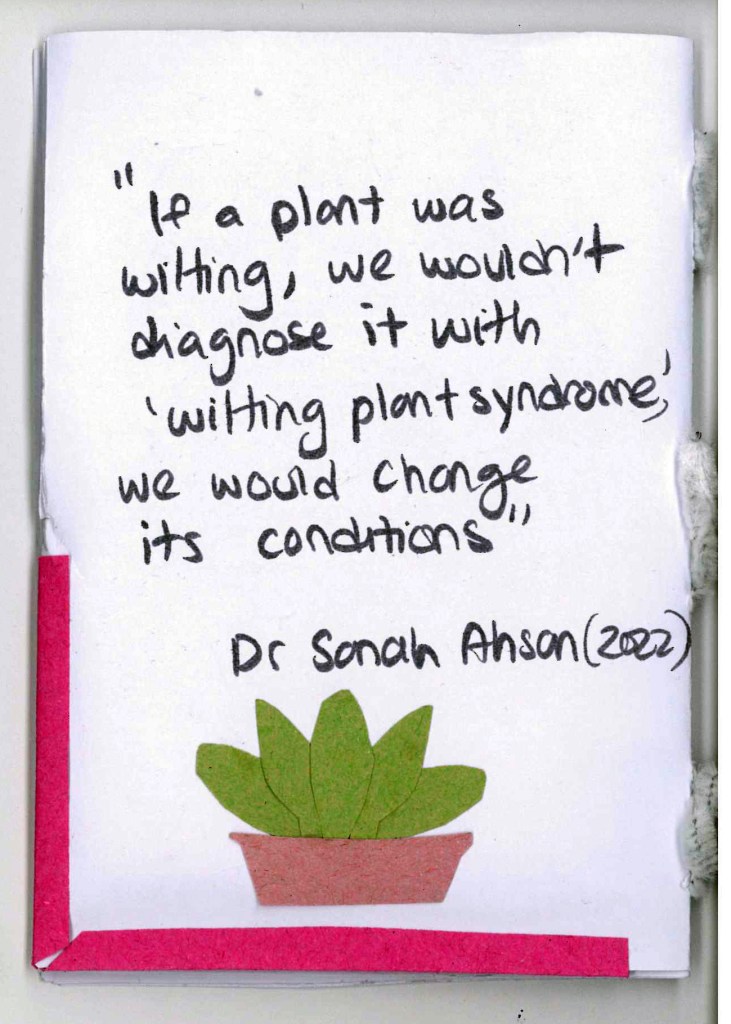 "If a plant was
wilting, we wouldn't
diagnose it with
'wilting plant syndrome,'
we would change
its conditions"
Dr Sanah Ahsan (2022)